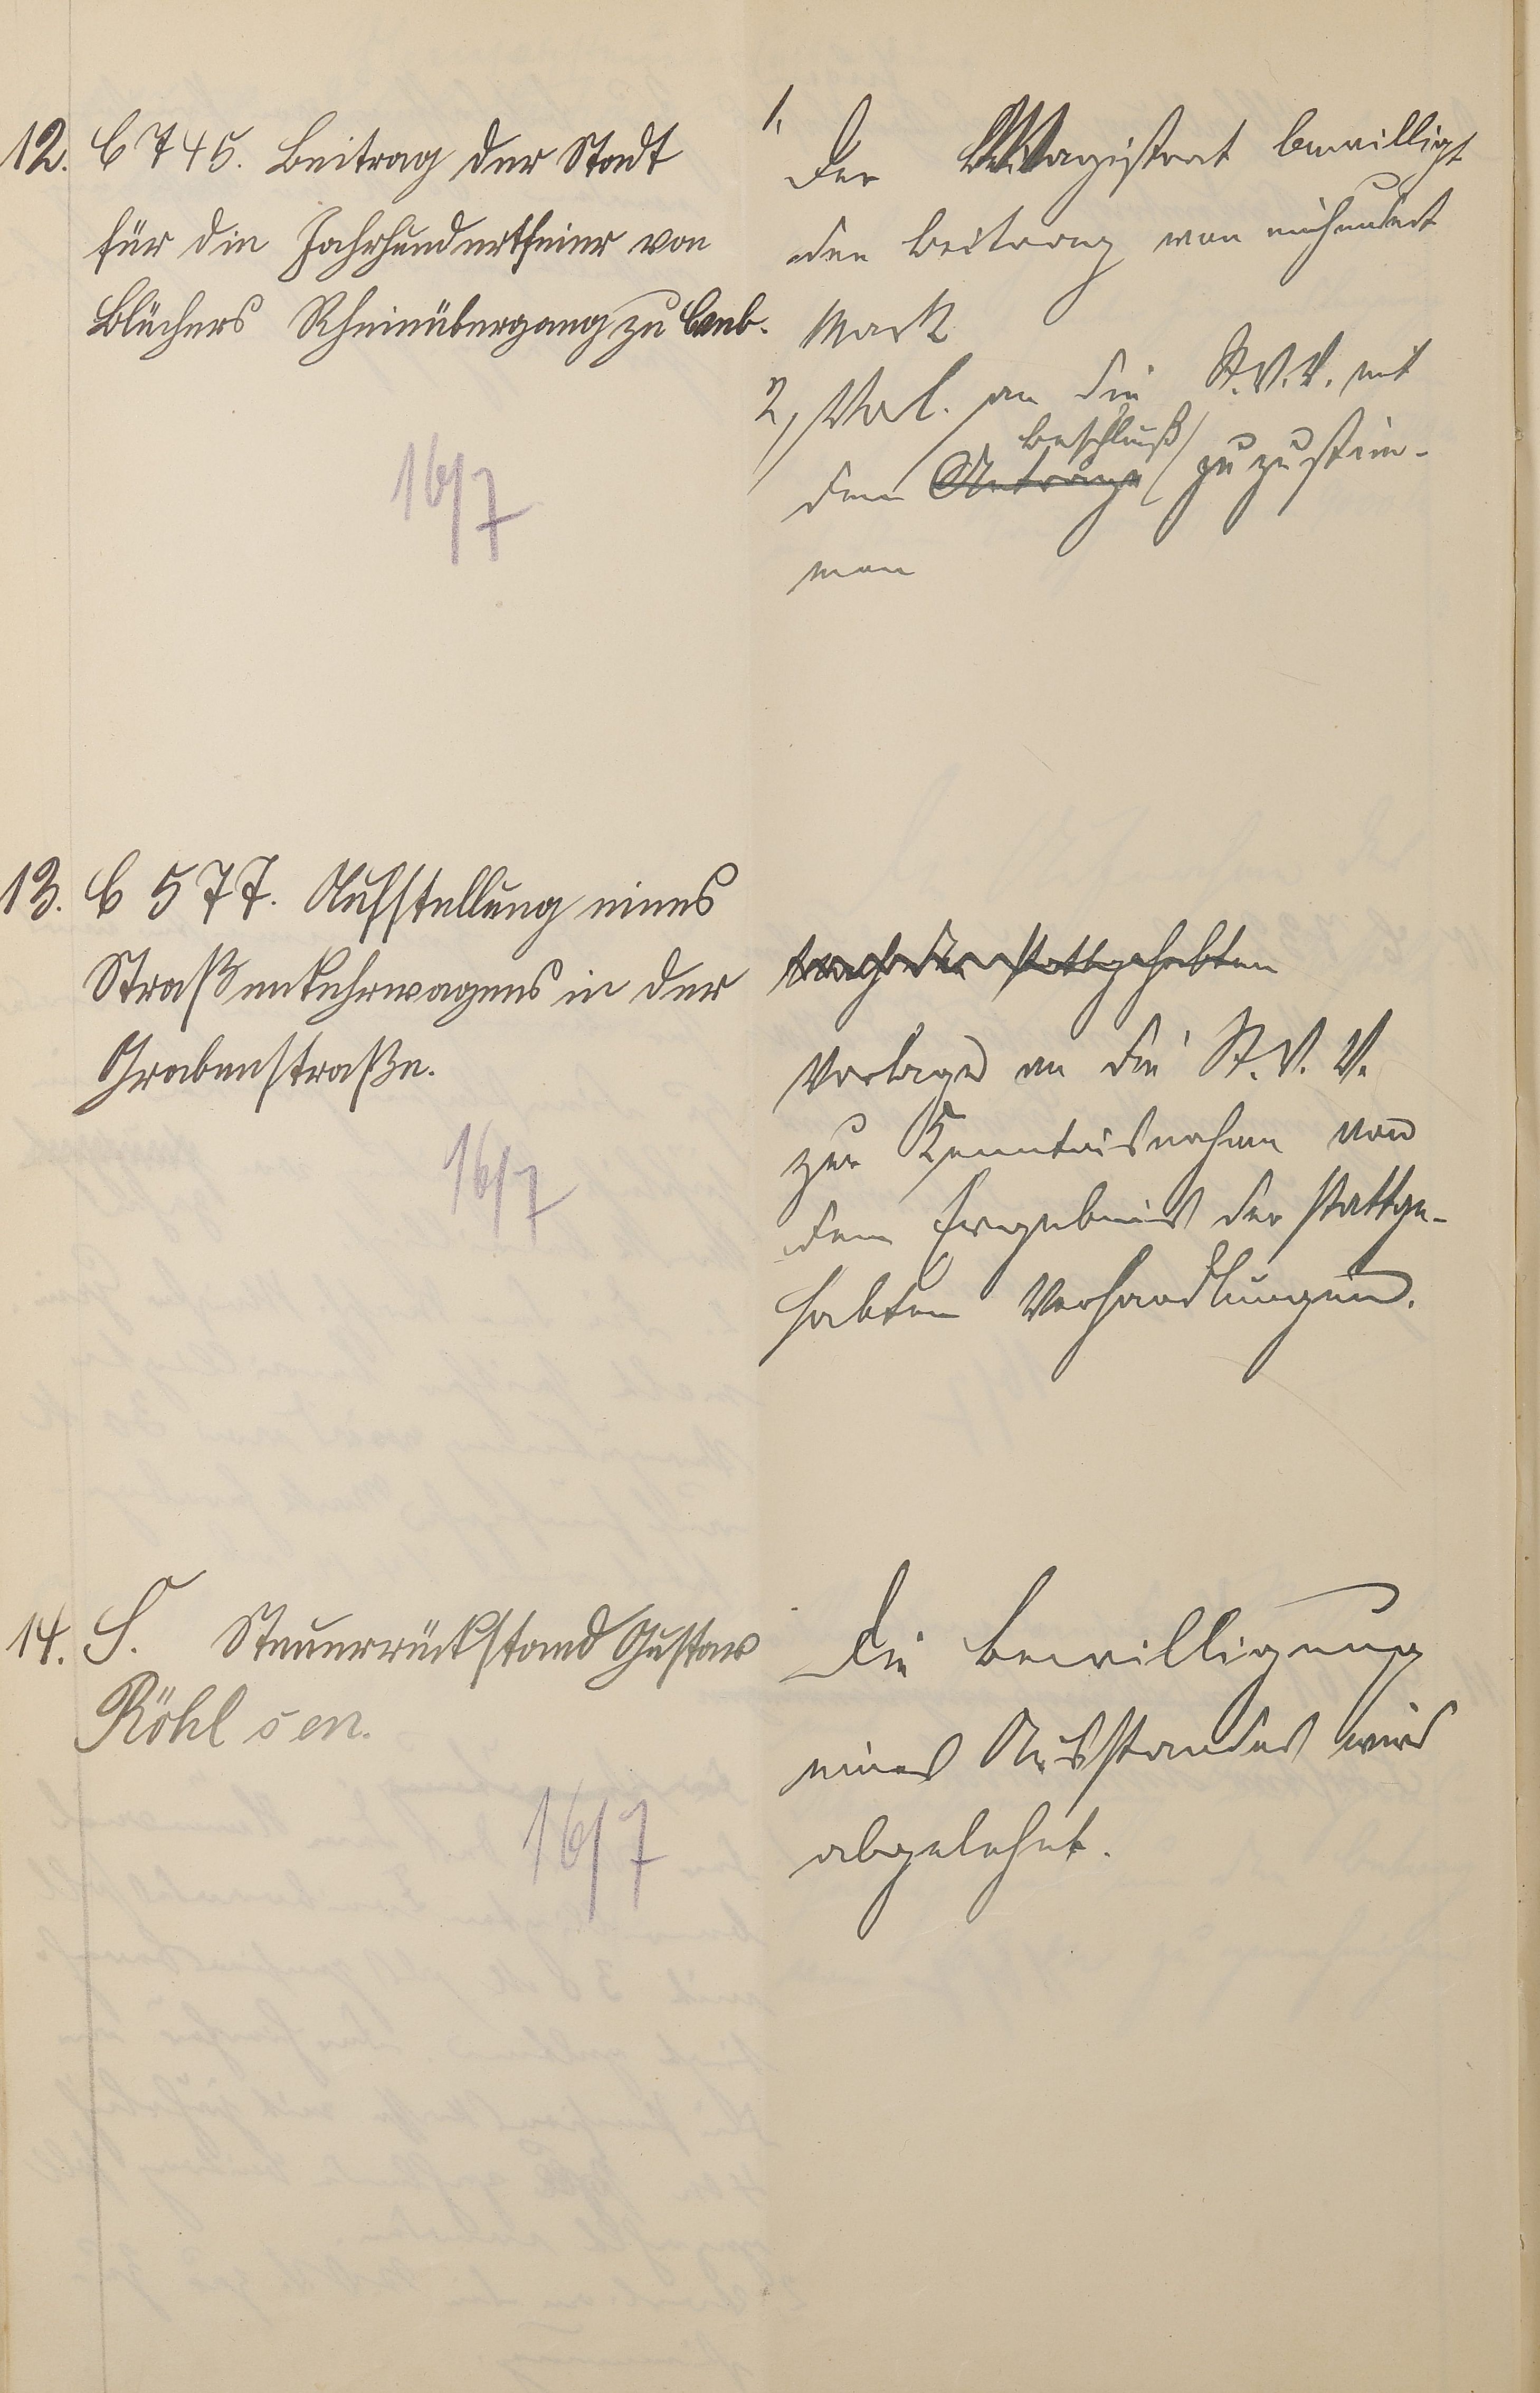 12. C 745. Beitrag der Stadt
für die Jahrhundertfeier von
Blüchers Rheinübergang zu Caub.
16/7
1. Der Magistrat bewilligt
den Beitrag von einhundert
Mark
2, Vorl. an die St.V.V. mit
Beschluß
dem Antrage zuzustim-
men
13. C 577. Aufstellung eines
Straßenkehrwagens in der
Grabenstraße.
16/7
stattgehabten
Vorlage an die St.V.V.
zur Kenntnisnahme von
dem Ergebnis der stattge-
habten Verhandlungen.
14. S. Steuerrückstand Gustav
Röhl sen.
16/7
Die Bewilligung
eines Ausstandes wird
abgelehnt.